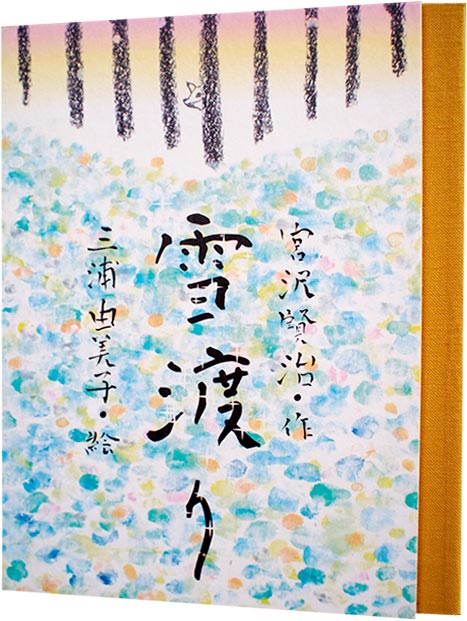 宮沢賢治・作
雪渡り
三浦由美子・絵